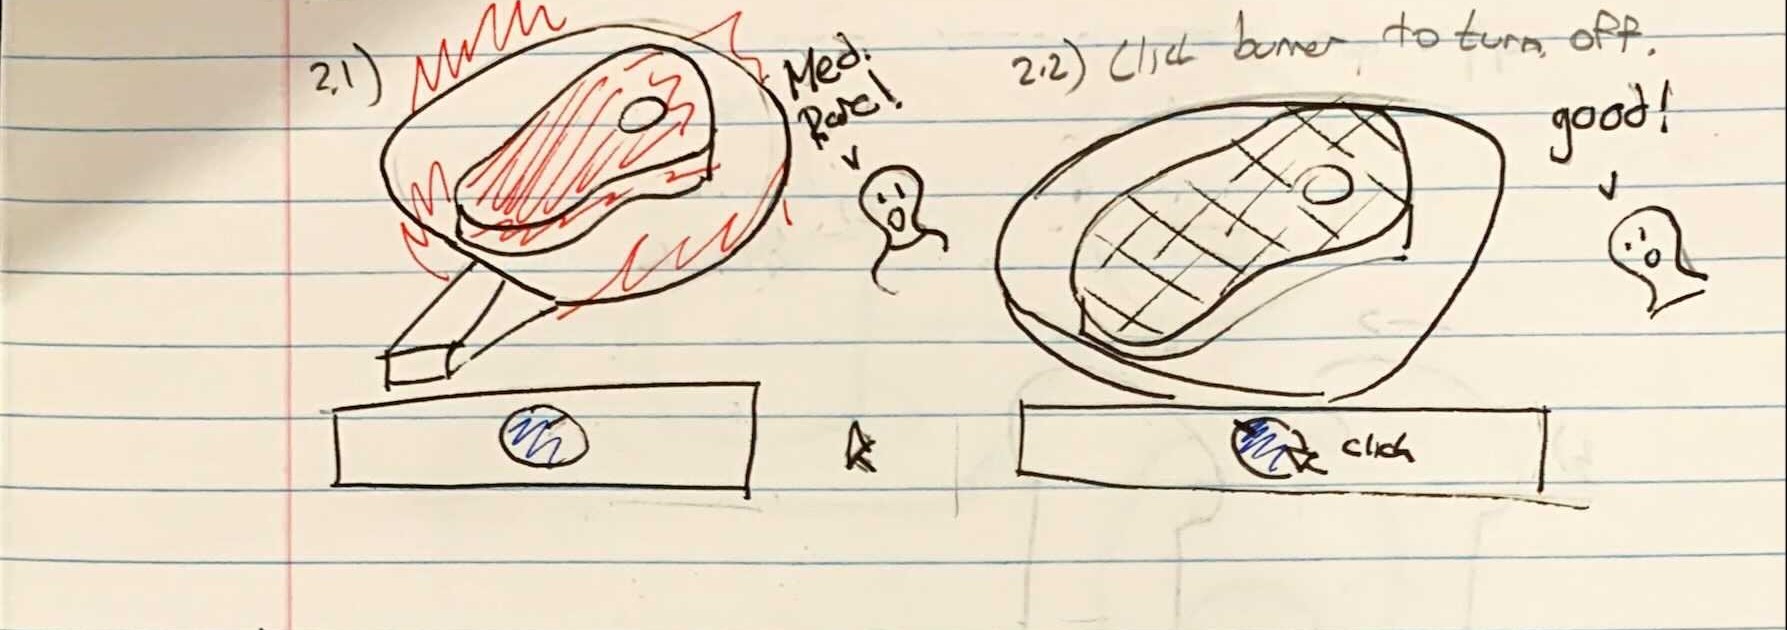 2.1)
Med.
Rare!
2.2) Click burner to turn off.
good!
click